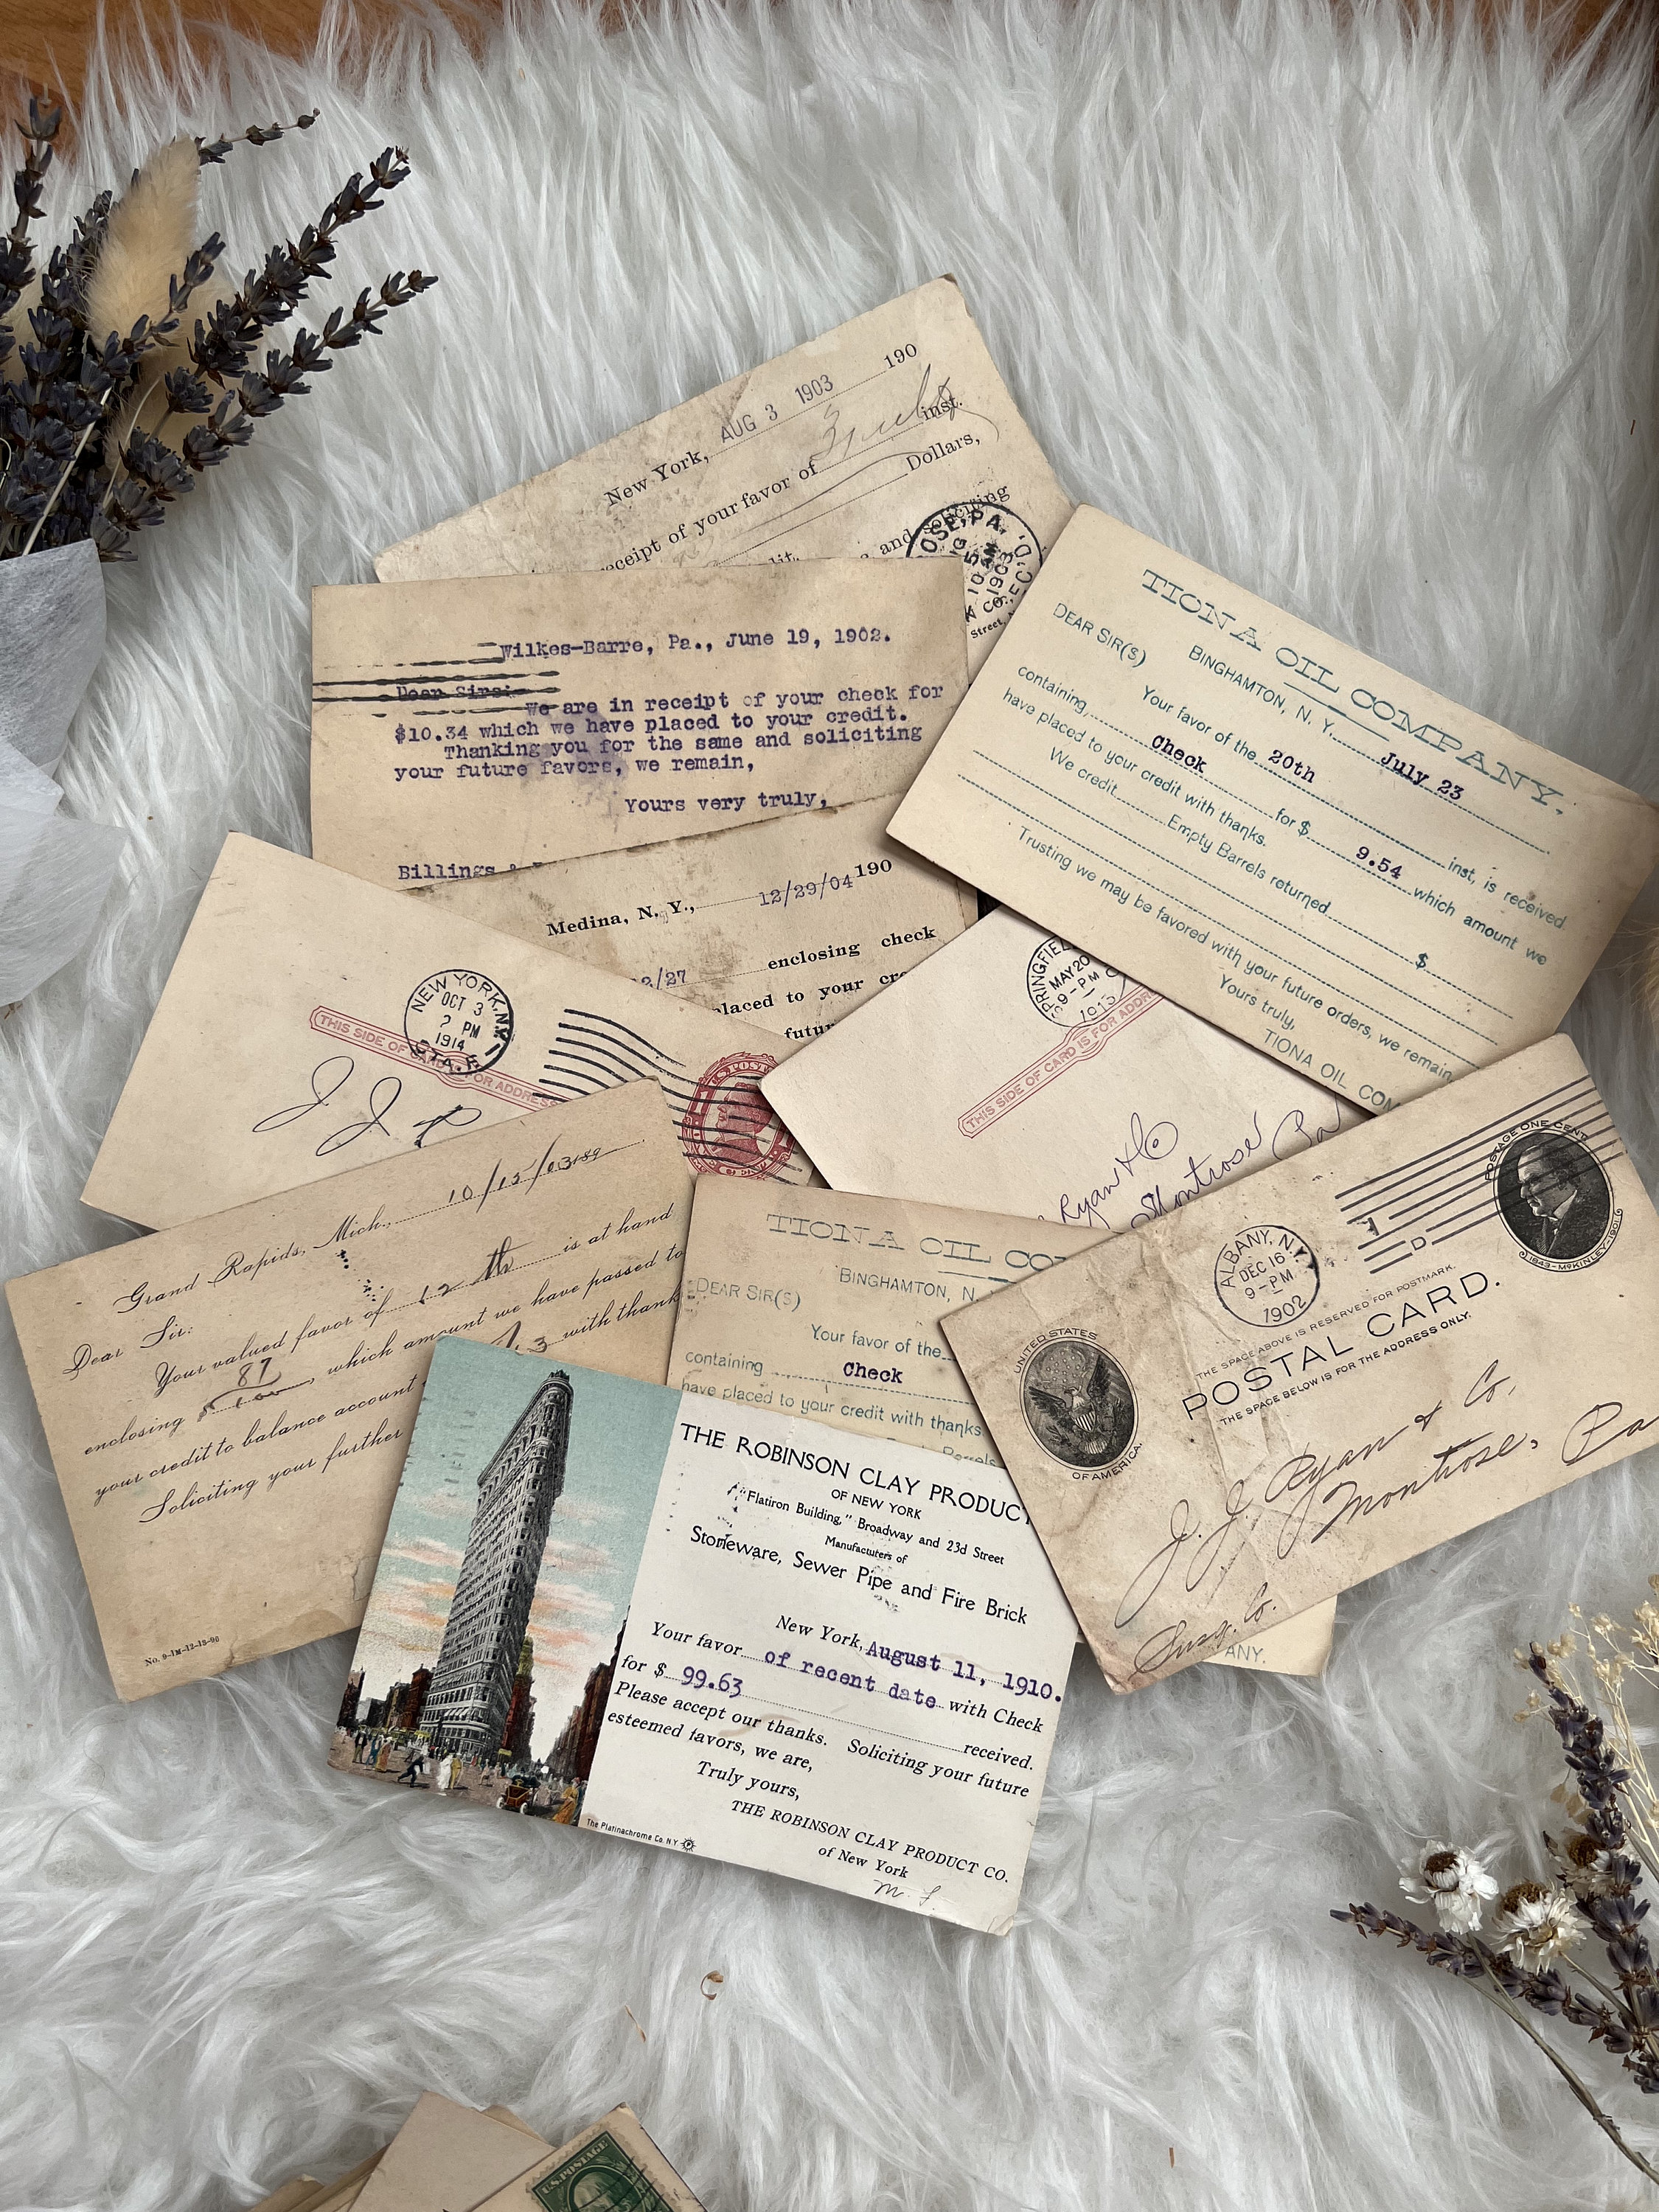 New York, AUG 3 1903 190
receipt of your favor of inst.
Dollars,
and soliciting
OSE, PA.
10
1903
REC'D.
Street,
Wilkes-Barre, Pa., June 19, 1902.
Dear Sirs:
We are in receipt of your check for
$10.34 which we have placed to your credit.
Thanking you for the same and soliciting
your future favors, we remain,
Yours very truly,
Billings &
TIONA OIL COMPANY.
BINGHAMTON, N. Y., July 23
DEAR SIR(S)
Your favor of the 20th inst, is received
containing, Check for $ 9.54 which amount we
have placed to your credit with thanks.
We credit Empty Barrels returned $
Trusting we may be favored with your future orders, we remain,
Yours truly,
TIONA OIL COM
Medina, N. Y., 12/29/04 190
/27 enclosing check
placed to your cre
futur
NEW YORK, N.Y.
OCT 3
2 PM
1914
STA. F
THIS SIDE OF CARD FOR ADDRESS
U.S. POST
J J
SPRINGFIEL
MAY 20
9-PM
1913
THIS SIDE OF CARD IS FOR ADDR
Ryan & Co
Montrose Pa
Grand Rapids, Mich., 10/15/03 189
Dear Sir:
Your valued favor of 12th is at hand
enclosing 87/100, which amount we have passed to
your credit to balance account 3 with thank
Soliciting your further
No. 9-1M-12-18-96
TIONA OIL CO
BINGHAMTON, N.
DEAR SIR(S)
Your favor of the
containing Check
have placed to your credit with thanks
Barrels
ANY.
ALBANY, N.Y.
DEC 16
9-PM
1902
1
D
POSTAGE ONE CENT
1843-McKINLEY-1901
UNITED STATES
OF AMERICA
THE SPACE ABOVE IS RESERVED FOR POSTMARK.
POSTAL CARD.
THE SPACE BELOW IS FOR THE ADDRESS ONLY.
J. J. Ryan & Co.
Montrose, Pa
Susq. Co.
THE ROBINSON CLAY PRODUCT
OF NEW YORK
"Flatiron Building," Broadway and 23d Street
Manufacturers of
Stoneware, Sewer Pipe and Fire Brick
New York, August 11, 1910.
Your favor of recent date with Check
for $ 99.63 received.
Please accept our thanks. Soliciting your future
esteemed favors, we are,
Truly yours,
THE ROBINSON CLAY PRODUCT CO.
of New York
The Platinachrome Co. N.Y.
U.S. POSTAGE